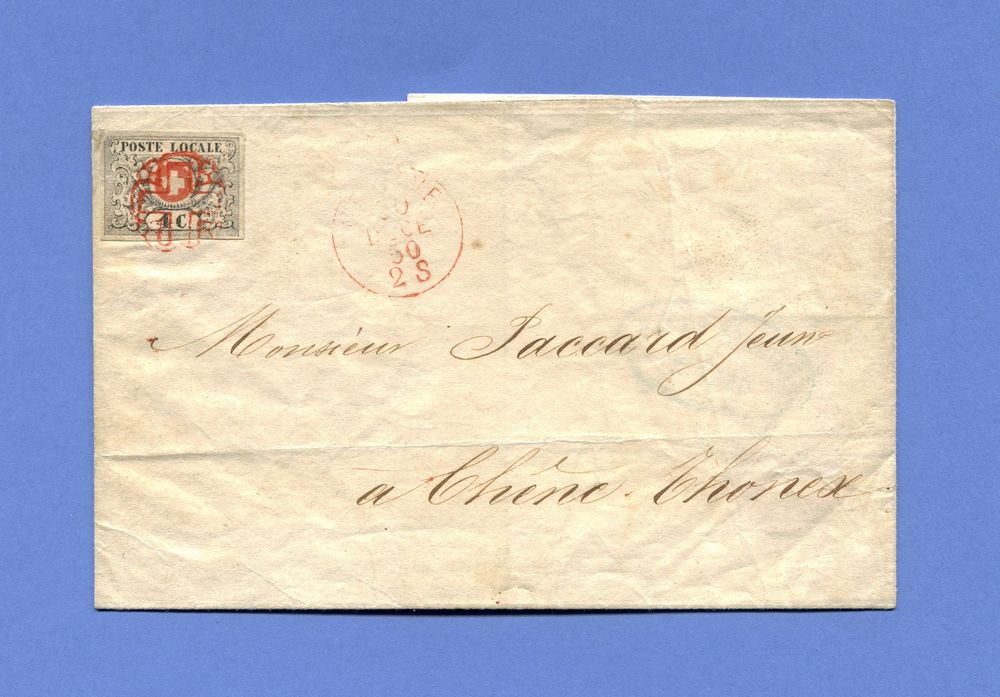 POSTE LOCALE
4 C
DECE
50
2 S
Monsieur Paccard Jeune
à Chêne Thonex